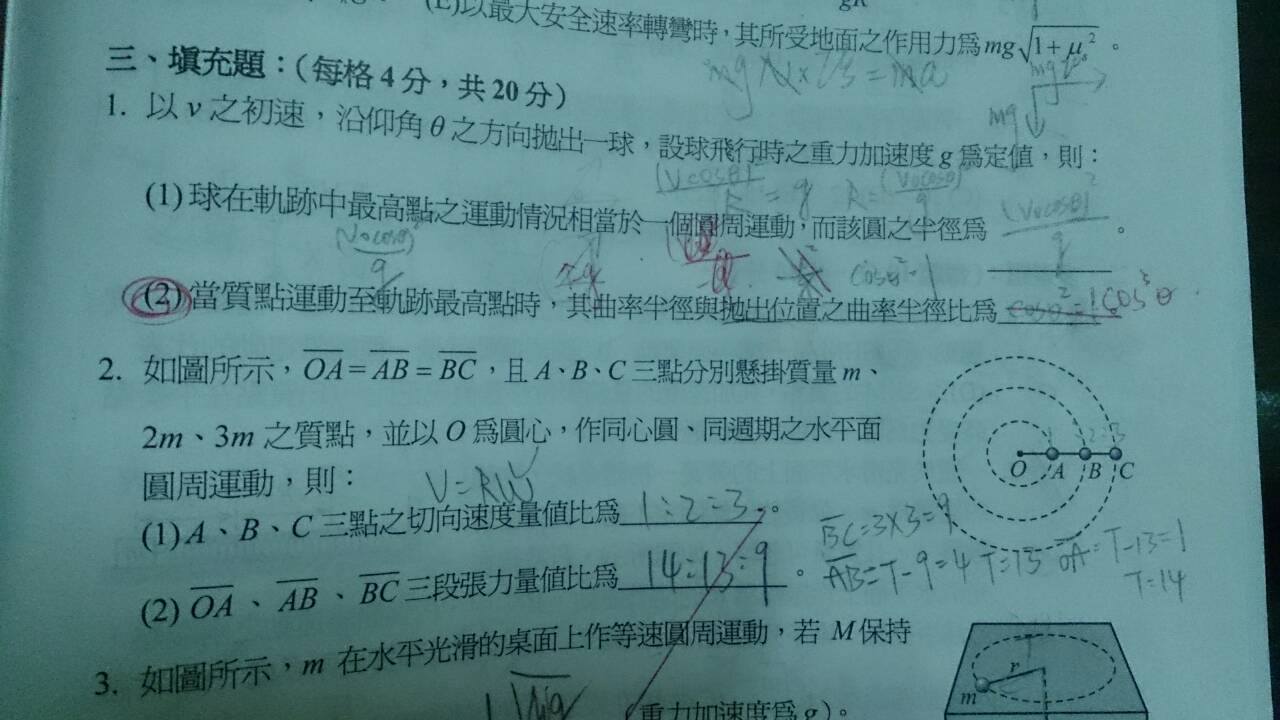 (E)以最大安全速率轉彎時，其所受地面之作用力為mg√1+μ²。
三、填充題：(每格4分，共20分)
mg N×2s=ma
mg
1. 以v之初速，沿仰角θ之方向拋出一球，設球飛行時之重力加速度g為定值，則：
(Vcosθ)²/R=g R=(V₀cosθ)²/g
(1)球在軌跡中最高點之運動情況相當於一個圓周運動，而該圓之半徑為(V₀cosθ)²/g。
(V₀cosθ)²/g
cosθ²=1
(2)當質點運動至軌跡最高點時，其曲率半徑與拋出位置之曲率半徑比為cosθ²=1 cos³θ.
2. 如圖所示，OA=AB=BC，且A、B、C三點分別懸掛質量m、
2m、3m之質點，並以O為圓心，作同心圓、同週期之水平面
圓周運動，則：
V=RW
1:2:3
O A B C
(1)A、B、C三點之切向速度量值比為1:2:3。
BC=3×3=9
(2)OA、AB、BC三段張力量值比為14:13:9。
AB=T-9=4 T=13 OA=T-13=1
T=14
3. 如圖所示，m在水平光滑的桌面上作等速圓周運動，若M保持
m r
(重力加速度為g)。